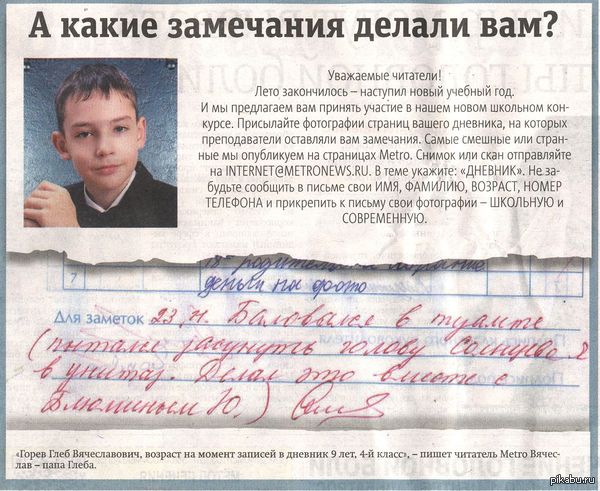 А какие замечания делали вам?
Уважаемые читатели!
Лето закончилось – наступил новый учебный год.
И мы предлагаем вам принять участие в нашем новом школьном кон-
курсе. Присылайте фотографии страниц вашего дневника, на которых
преподаватели оставляли вам замечания. Самые смешные или стран-
ные мы опубликуем на страницах Metro. Снимок или скан отправляйте
на INTERNET@METRONEWS.RU. В теме укажите: «ДНЕВНИК». Не за-
будьте сообщить в письме свои ИМЯ, ФАМИЛИЮ, ВОЗРАСТ, НОМЕР
ТЕЛЕФОНА и прикрепить к письму свои фотографии – ШКОЛЬНУЮ и
СОВРЕМЕННУЮ.
родительское собрание
7 деньги на фото
Для заметок 23. Баловался в туалете
(пытался засунуть голову
в унитаз. Делал это вместе с
Блюминым Ю.)
«Горев Глеб Вячеславович, возраст на момент записей в дневник 9 лет, 4-й класс», – пишет читатель Metro Вячес-
лав – папа Глеба.
pikabu.ru